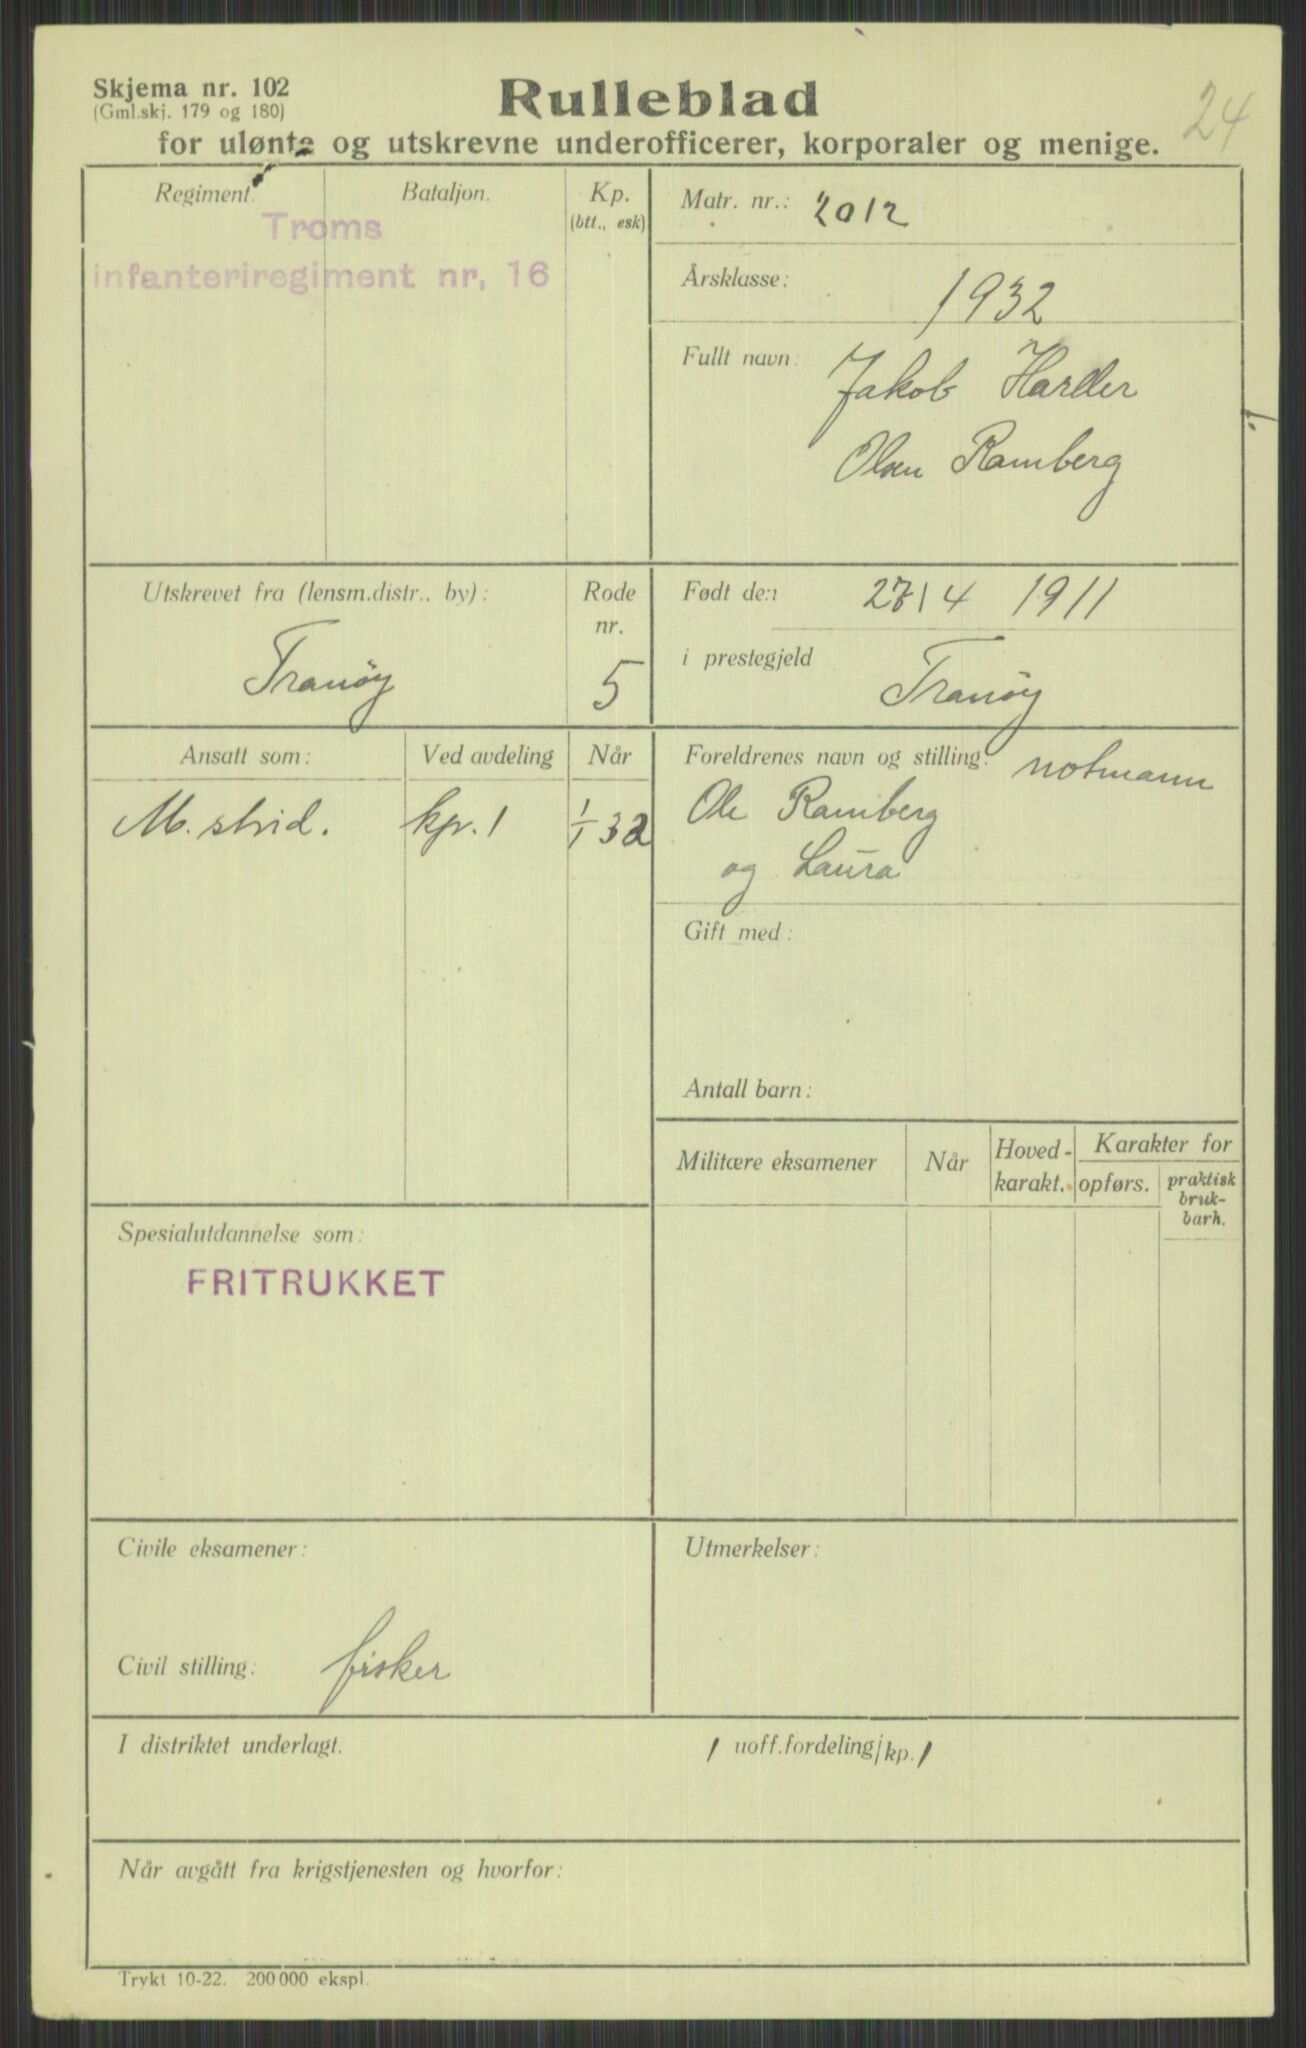 Skjema nr. 102
(Gml.skj. 179 og 180)
Rulleblad
24
for ulønte og utskrevne underofficerer, korporaler og menige.
Regiment.
Bataljon.
Kp.
(btt., esk)
Troms
infanteriregiment nr, 16
Matr. nr.: 2012
Årsklasse: 1932
Fullt navn: Jakob Harder
Olsen Ramberg
Utskrevet fra (lensm.distr.. by):
Tranöy
Rode
nr.
5
Født den 27/4 1911
i prestegjeld Tranöy
Ansatt som:
Ved avdeling
Når
M. strid. kpr. 1 1/1 32
Foreldrenes navn og stilling: notmann
Ole Ramberg
og Laura
Gift med:
Antall barn:
Militære eksamener
Når
Hoved-
karakt.
Karakter for
opførs.
praktisk
bruk-
barh.
Spesialutdannelse som:
FRITRUKKET
Civile eksamener:
Civil stilling: fisker
Utmerkelser:
I distriktet underlagt. / uoff.fordeling/kp. /
Når avgått fra krigstjenesten og hvorfor:
Trykt 10-22. 200 000 ekspl.